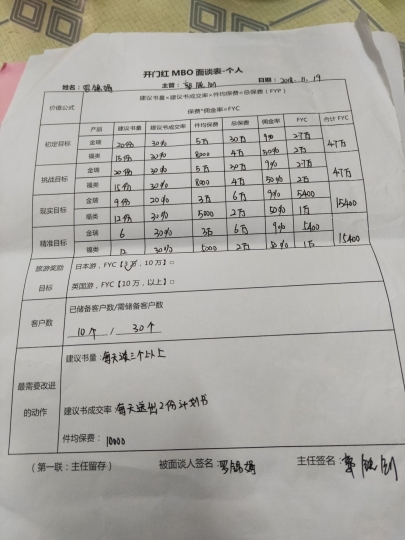 开门红 MBO 面谈表-个人
姓名: 主管: 日期: 2018.11.19
价值公式 建议书量×建议书成交率×件均保费=总保费(FYP)
保费*佣金率=FYC
产品 建议书量 建议书成交率 件均保费 总保费 佣金率 FYC 合计 FYC
初定目标 金瑞 20份 30% 5万 30万 9% 2.7万 4.7万
福类 15份 30% 8000 4万 50% 2万
挑战目标 金瑞 20份 30% 5万 30万 9% 2.7万 4.7万
福类 15份 30% 8000 4万 50% 2万
现实目标 金瑞 9份 20% 3万 6万 9% 5400 15400
福类 12份 30% 5000 2万 50% 1万
精准目标 金瑞 6 30% 3万 6万 9% 5400 15400
福类 12 30% 5000 2万 50% 1万
旅游奖励目标 日本游,FYC【3万,10万】□
英国游,FYC【10万,以上】□
客户数 已储备客户数/需储备客户数
10个 / 30个
最需要改进的动作 建议书量:每天谈三个以上
建议书成交率:每天送出2份计划书
件均保费:10000
(第一联:主任留存) 被面谈人签名: 主任签名: